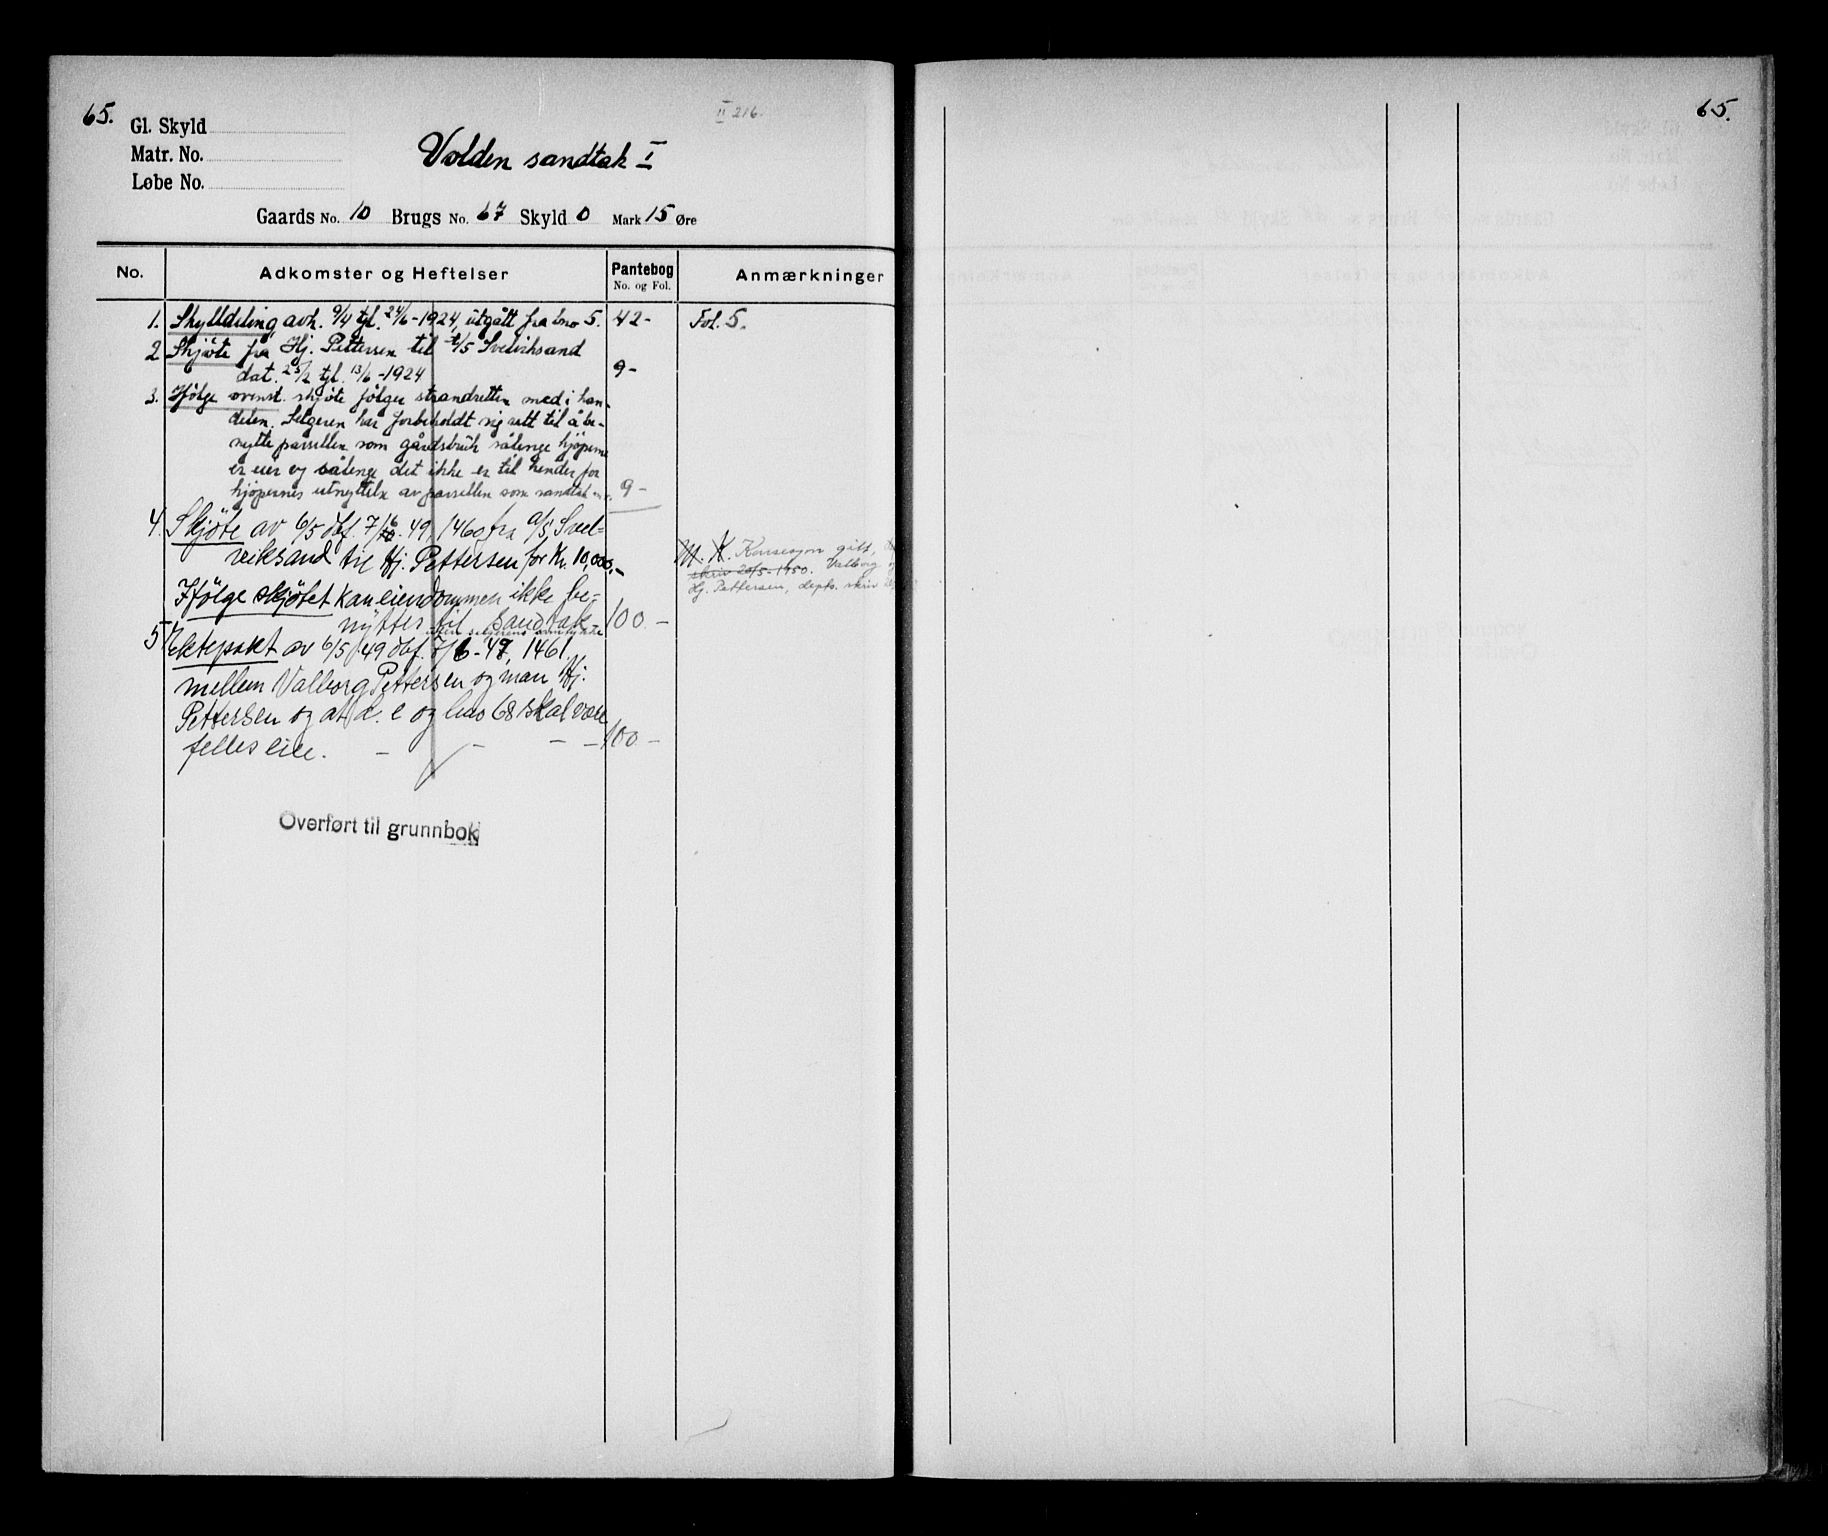 65.
II 216.
Gl. Skyld
Matr. No.
Løbe No.
Volden sandtak I
Gaards No. 10 Brugs No. 67 Skyld 0 Mark 15 Øre
No. Adkomster og Heftelser Pantebog No. og Fol. Anmærkninger
1. Skylddeling avh. 9/4 tgl. 24/6-1924, utgått fra bno 5. 42- Fol. 5.
2 Skjøte fra Hj. Pettersen til A/S Svelviksand
dat. 25/2 tgl. 13/6-1924 9-
3. Ifølge ovenst. skjøte følger strandretten med i han-
delen. Selgeren har forbeholdt sig rett til å be-
nytte parsellen som gårdsbruk sålenge kjøperne
er eier og sålenge det ikke er til hinder for
kjøpernes utnyttelse av parsellen som sandtak 9-
4. Skjøte av 6/5 dbf. 7/6 49, 1460 fra A/S Svel-
viksand til Hj. Pettersen for Kr. 10,000,-
M. K. Konsesjon gitt,
skriv 20/5-1950. Valborg
Hj. Pettersen, depts. skriv
Ifølge skjøtet kan eiendommen ikke be-
nyttes til sandtak 100-
uten selgerens samtykke
5 Ektepakt av 6/5 49 dbf. 7/6-49, 1461
mellem Valborg Pettersen og man Hj.
Pettersen og at d. e og bno 68 skal være
felles eie. - - - - 100-
Overført til grunnbok
65.